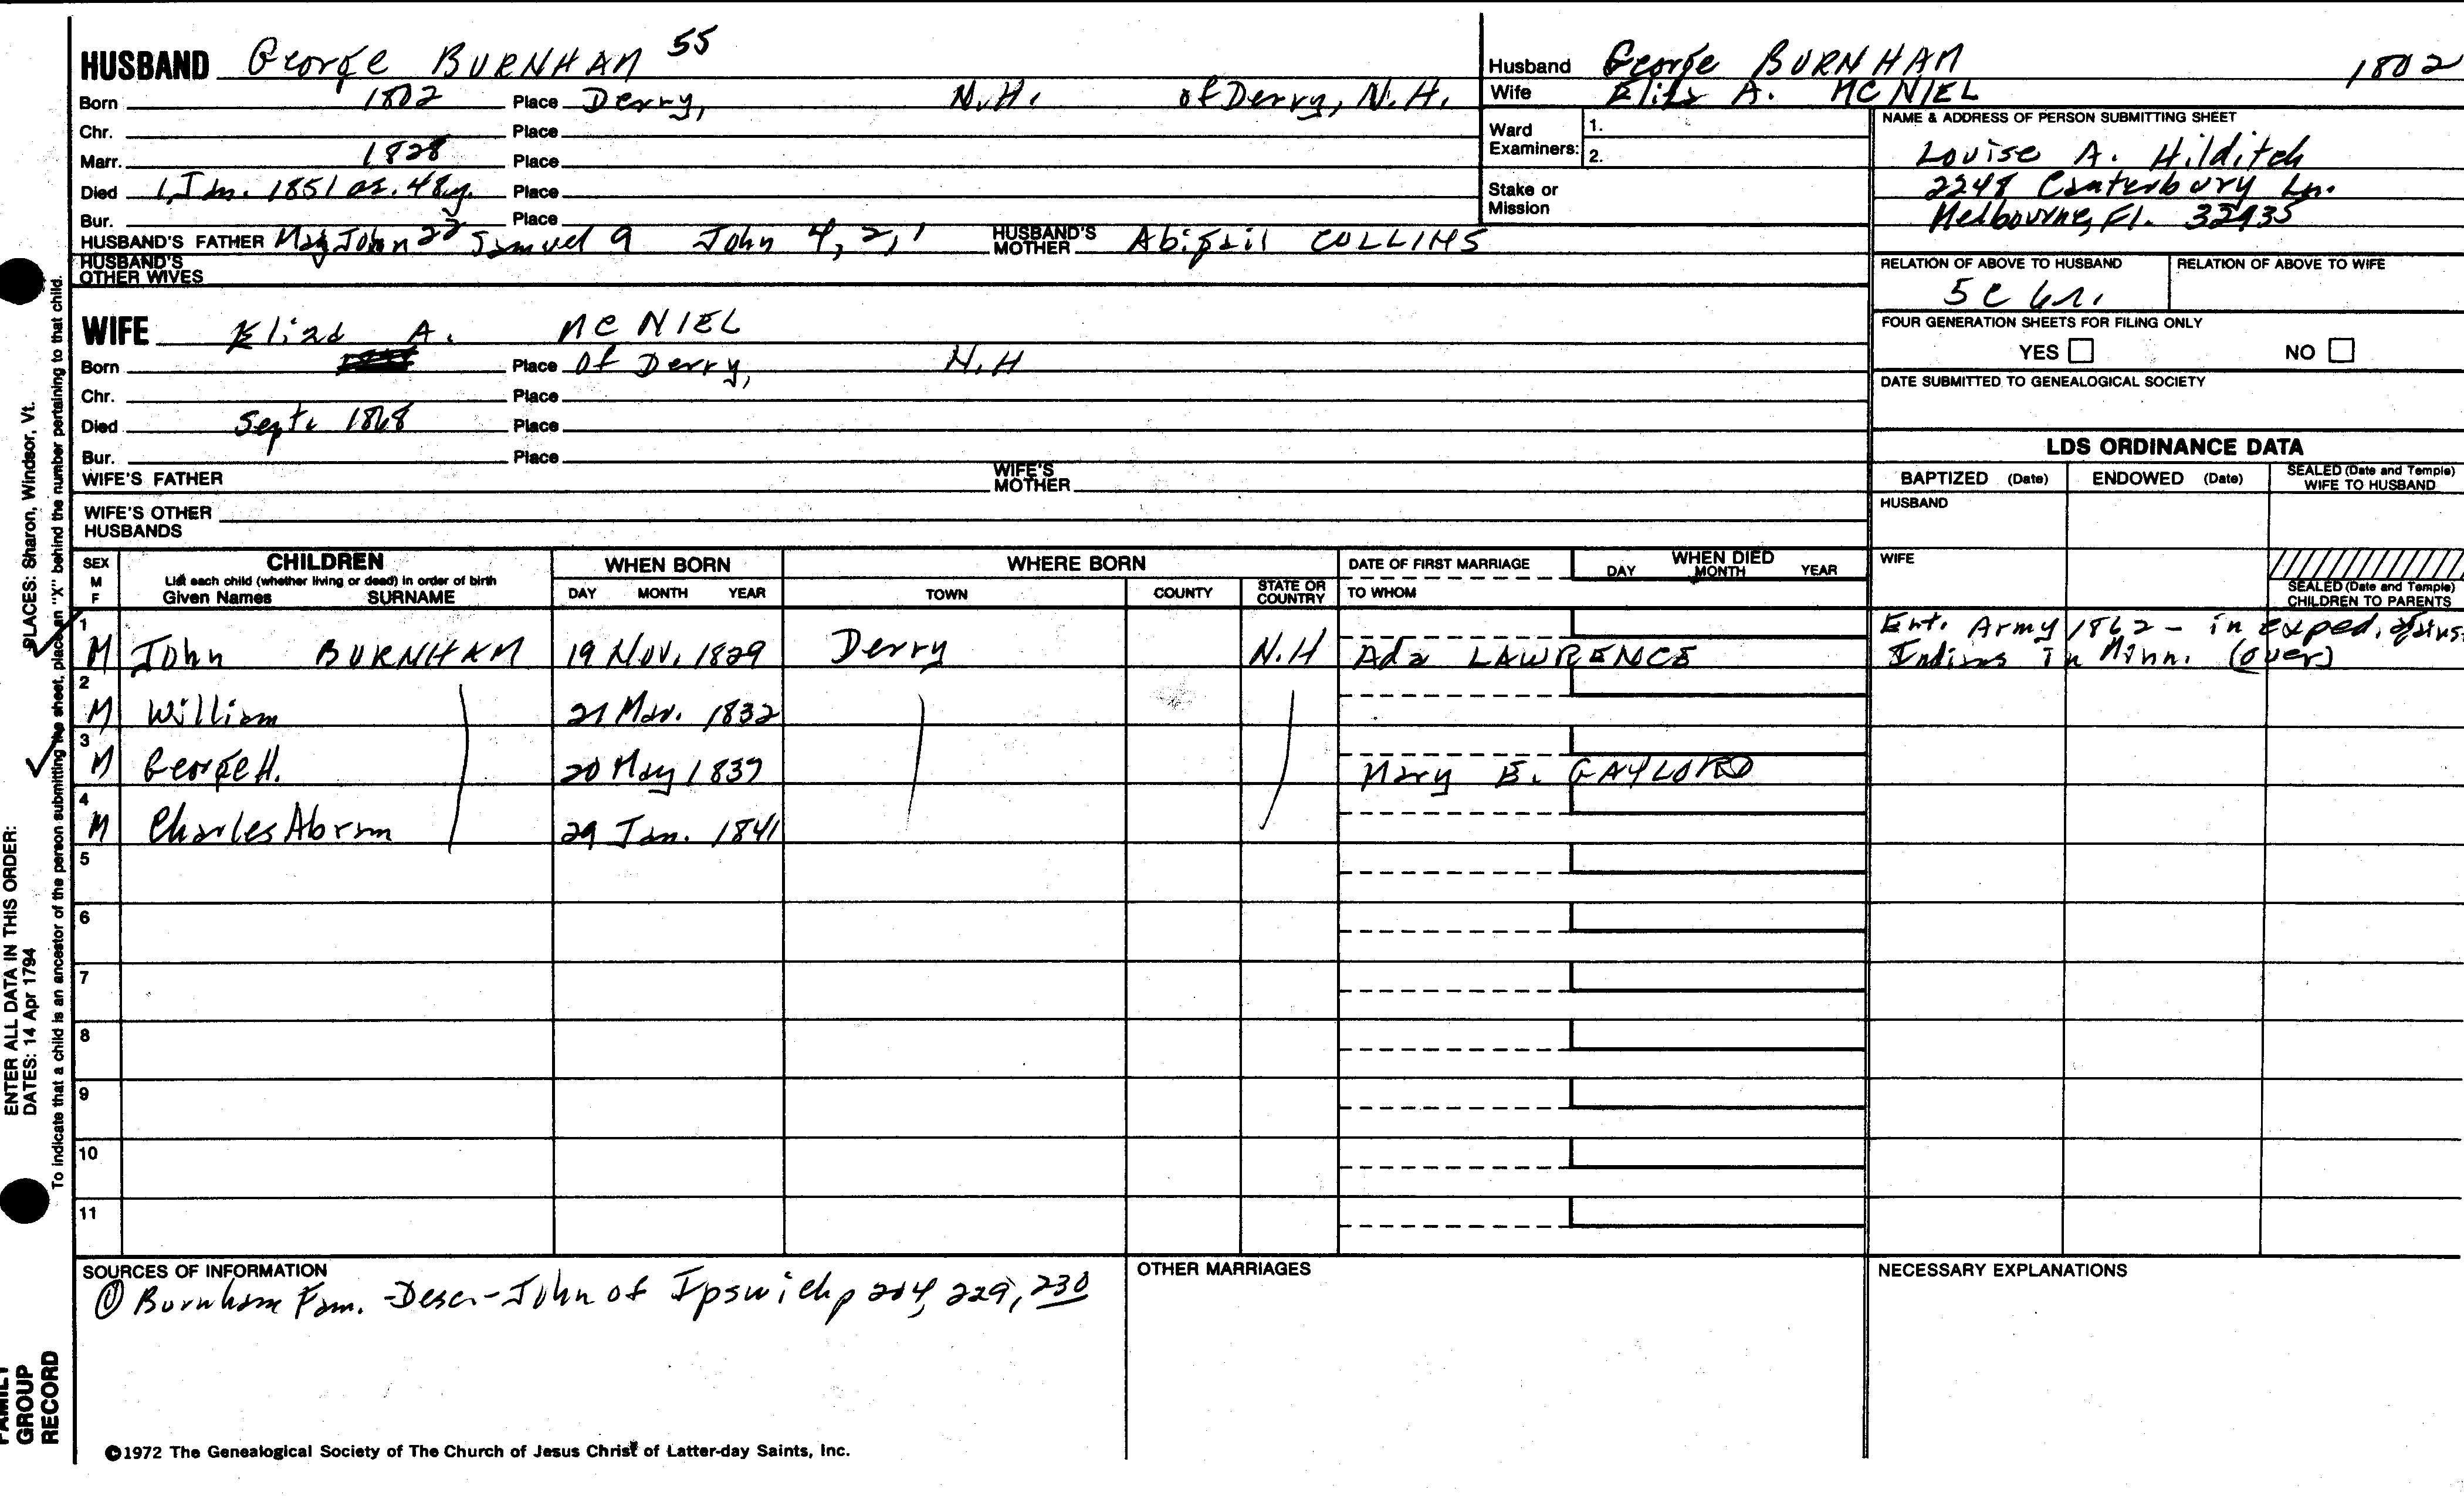 HUSBAND George BURNHAM 55
Born 1802 Place Derry, N.H. of Derry, N.H.
Chr. Place
Marr. 1828 Place
Died 1 Jan. 1851 ae. 48y. Place
Bur. Place
HUSBAND'S FATHER Maj John 22 Samuel 9 John 4, 2, 1 HUSBAND'S MOTHER Abigail COLLINS
HUSBAND'S OTHER WIVES
WIFE Eliza A. MC NIEL
Born Place Of Derry, N.H
Chr. Place
Died Sept. 1868 Place
Bur. Place
WIFE'S FATHER WIFE'S MOTHER
WIFE'S OTHER HUSBANDS
Husband George BURNHAM 1802
Wife Eliza A. MC NIEL
Ward Examiners: 1.
2.
Stake or Mission
NAME & ADDRESS OF PERSON SUBMITTING SHEET
Louise A. Hilditch
2248 Canterbury Ln.
Melbourne, Fl. 32935
RELATION OF ABOVE TO HUSBAND RELATION OF ABOVE TO WIFE
5c 6r.
FOUR GENERATION SHEETS FOR FILING ONLY
YES NO
DATE SUBMITTED TO GENEALOGICAL SOCIETY
LDS ORDINANCE DATA
BAPTIZED (Date) ENDOWED (Date) SEALED (Date and Temple) WIFE TO HUSBAND
HUSBAND
WIFE
SEALED (Date and Temple) CHILDREN TO PARENTS
SEX M F
CHILDREN
List each child (whether living or dead) in order of birth
Given Names SURNAME
WHEN BORN
DAY MONTH YEAR
WHERE BORN
TOWN COUNTY STATE OR COUNTRY
DATE OF FIRST MARRIAGE
TO WHOM
WHEN DIED
DAY MONTH YEAR
1 M John BURNHAM 19 Nov. 1829 Derry N.H Ada LAWRENCE
Ent. Army 1862 - in exped. agains
Indians in Minn. (over)
2 M William 21 Mar. 1832
3 M George H. 20 May 1837 Mary E. GAYLORD
4 M Charles Abram 29 Jan. 1841
5
6
7
8
9
10
11
SOURCES OF INFORMATION
① Burnham Fam. -Desc.-John of Ipswich p 214, 229, 230
OTHER MARRIAGES
NECESSARY EXPLANATIONS
©1972 The Genealogical Society of The Church of Jesus Christ of Latter-day Saints, Inc.
FAMILY GROUP RECORD
ENTER ALL DATA IN THIS ORDER:
DATES: 14 Apr 1794
PLACES: Sharon, Windsor, Vt.
To indicate that a child is an ancestor of the person submitting the sheet, place an "X" behind the number pertaining to that child.